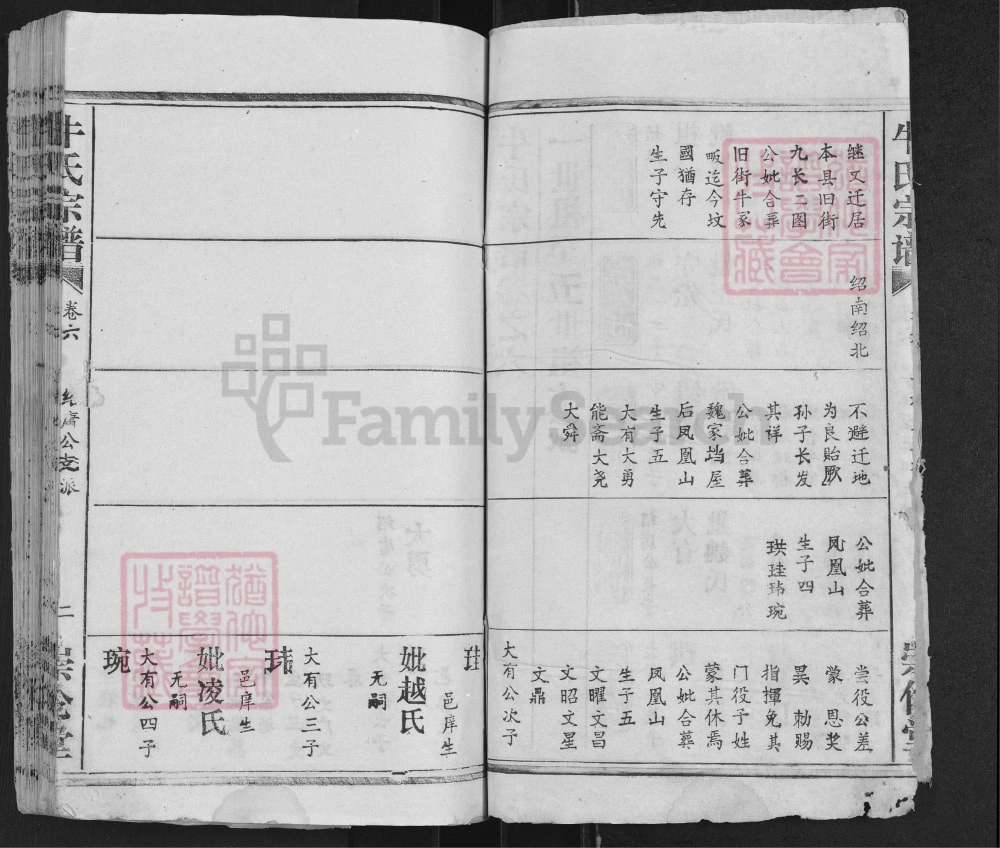 牛氏宗谱
继又迁居
本具旧街
九长二图
公妣合葬
旧街牛家
畈迄今坟
國猶存
生子守先
绍南绍北
不避迁地
为良贻厥
孙子长发
其祥
公妣合葬
魏家垱屋
后凤凰山
生子五
大有大勇
能斋大尧
大舜
公妣合葬
凤凰山
生子四
珙珪玮琬
尝役公差
蒙 恩奖
異 勅赐
指揮免其
门役子姓
蒙其休焉
公妣合葬
凤凰山
生子五
文曜文昌
文昭文星
文鼎
大有公次子
珪
邑庠生
妣越氏
无嗣
大有公三子
玮
邑庠生
妣凌氏
无嗣
大有公四子
琬
牛氏宗譜
卷六
公支派
二
崇伦堂
FamilySearch